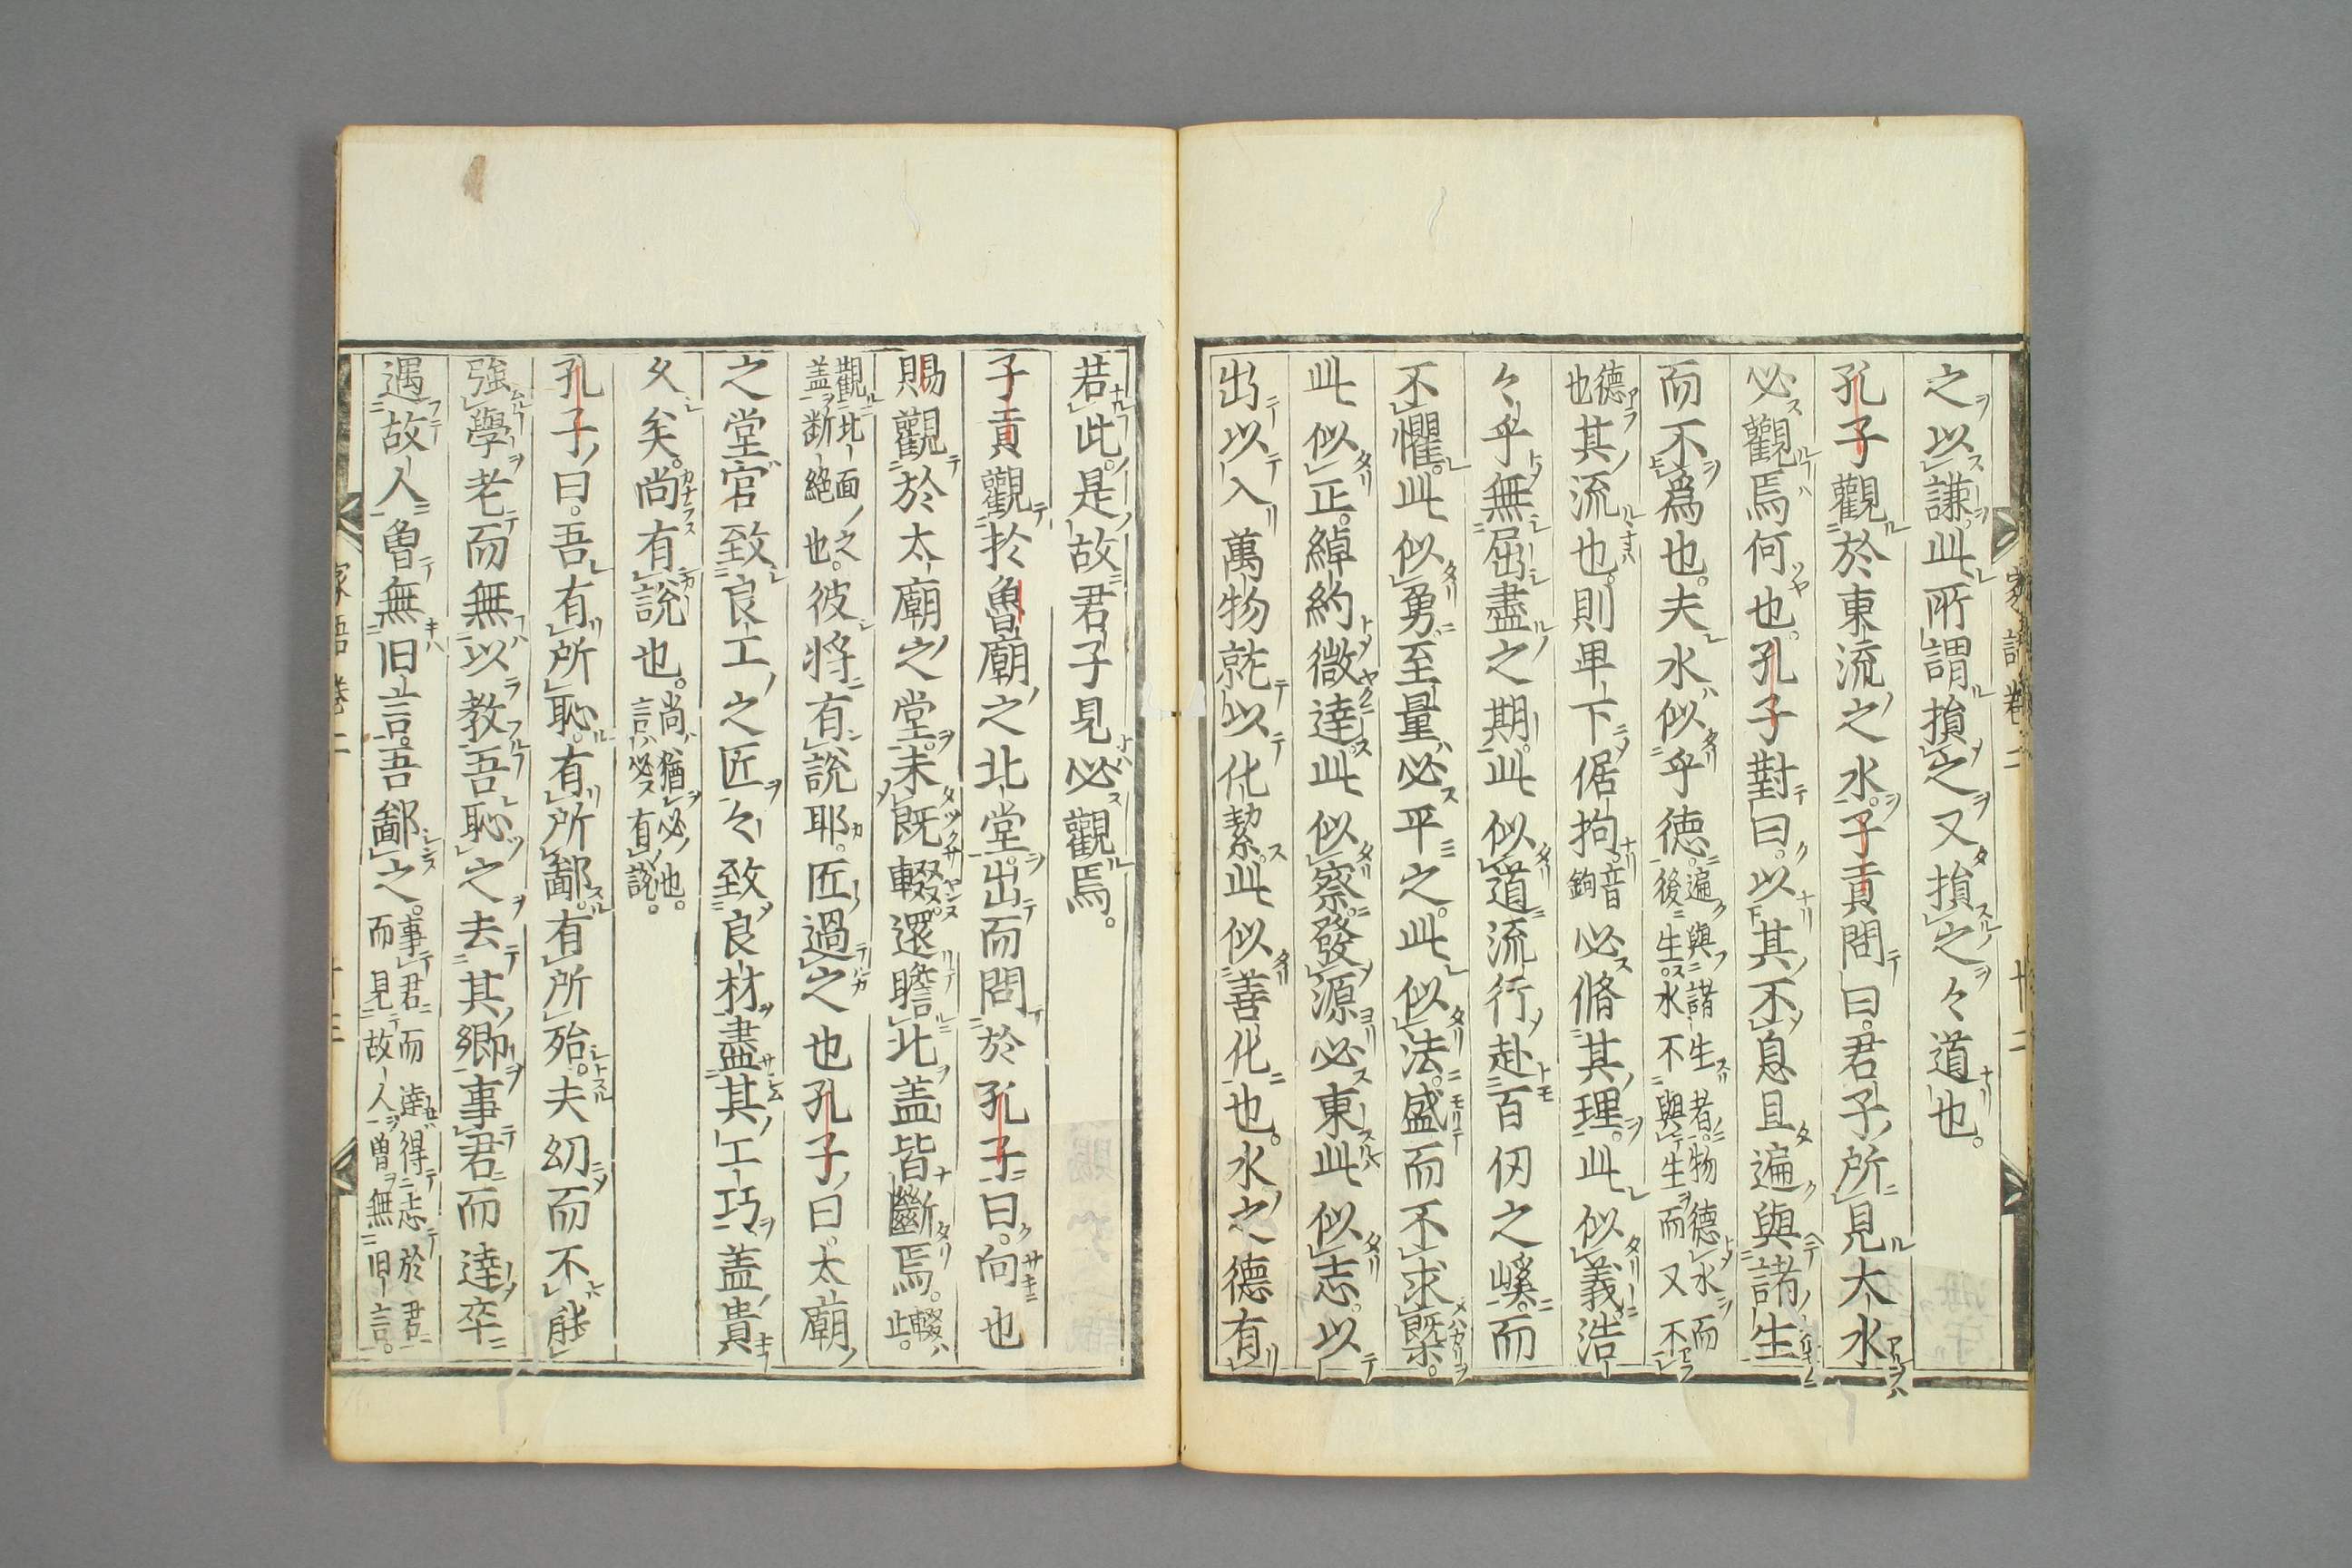 之以謙此所謂損之又損之々道也。
孔子觀於東流之水。子貢問曰。君子所見大水
必觀焉何也。孔子對曰。以其不息且遍與諸生
而不爲也。夫水似乎德。遍與諸生者。物德水而
後生。水不與生而又不
德
也其流也。則卑下倨拘音
鉤必脩其理。此似義浩
々乎無屈盡之期。此似道流行赴百仞之嵠。而
不懼。此似勇至量必平之。此似法。盛而不求槩。
此似正。綽約微達此似察。發源必東此似志。以
出以入萬物就以化絜。此似善化也。水之德有
若此。是故君子見必觀焉。
子貢觀於魯廟之北堂。出而問於孔子曰。向也
賜觀於太廟之堂。未既輟。還瞻北蓋皆斷焉。輟
止。
觀北面之
盖斷絕也。彼將有說耶。匠過之也孔子曰。太廟
之堂官致良工之匠々致良材盡其工巧蓋貴
久矣。尚有說也。尚猶必也。
言必有說。
孔子曰。吾有所恥。有所鄙。有所殆。夫幼而不能
強學老而無以教吾恥之去其鄉事君而達卒
遇故人曾無旧言。吾鄙之。事君而達得志於君
而見故人曾無旧言。
家語卷二 十二
家語卷二 十三